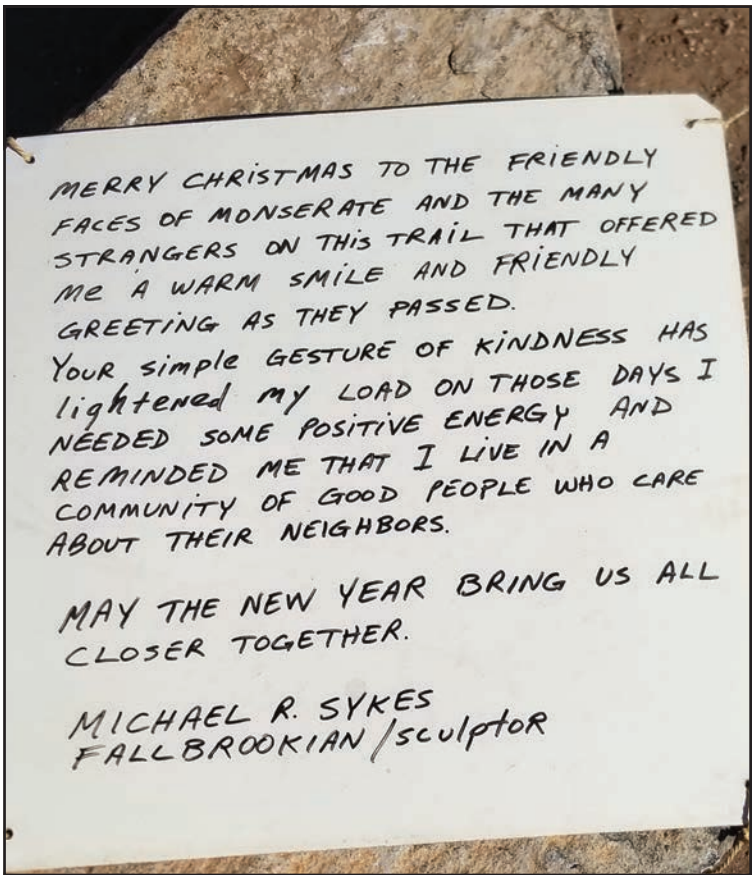 MERRY CHRiSTMAS TO THE FRIENDLY
FACES OF MONSERATE AND THE MANY
STRANGERS ON THiS TRAIL THAT OFFERED
Me A WARM SMILE AND FRiENDLY
GREETiNG AS THEY PASSED.
YOUR simple GESTURE OF KiNDNESS HAS
lightened my LOAD ON THOSE DAYS I
NEEDED SOME POSITIVE ENERGY AND
REMINDED ME THAT I LiVE IN A
COMMUNiTY OF GOOD PEOPLE WHO CARE
ABOUT THEIR NEIGHBORS.
MAY THE NEW YEAR BRING US ALL
CLOSER TOGETHER.
MICHAEL R. SYKES
FALLBROOKIAN/sculptoR